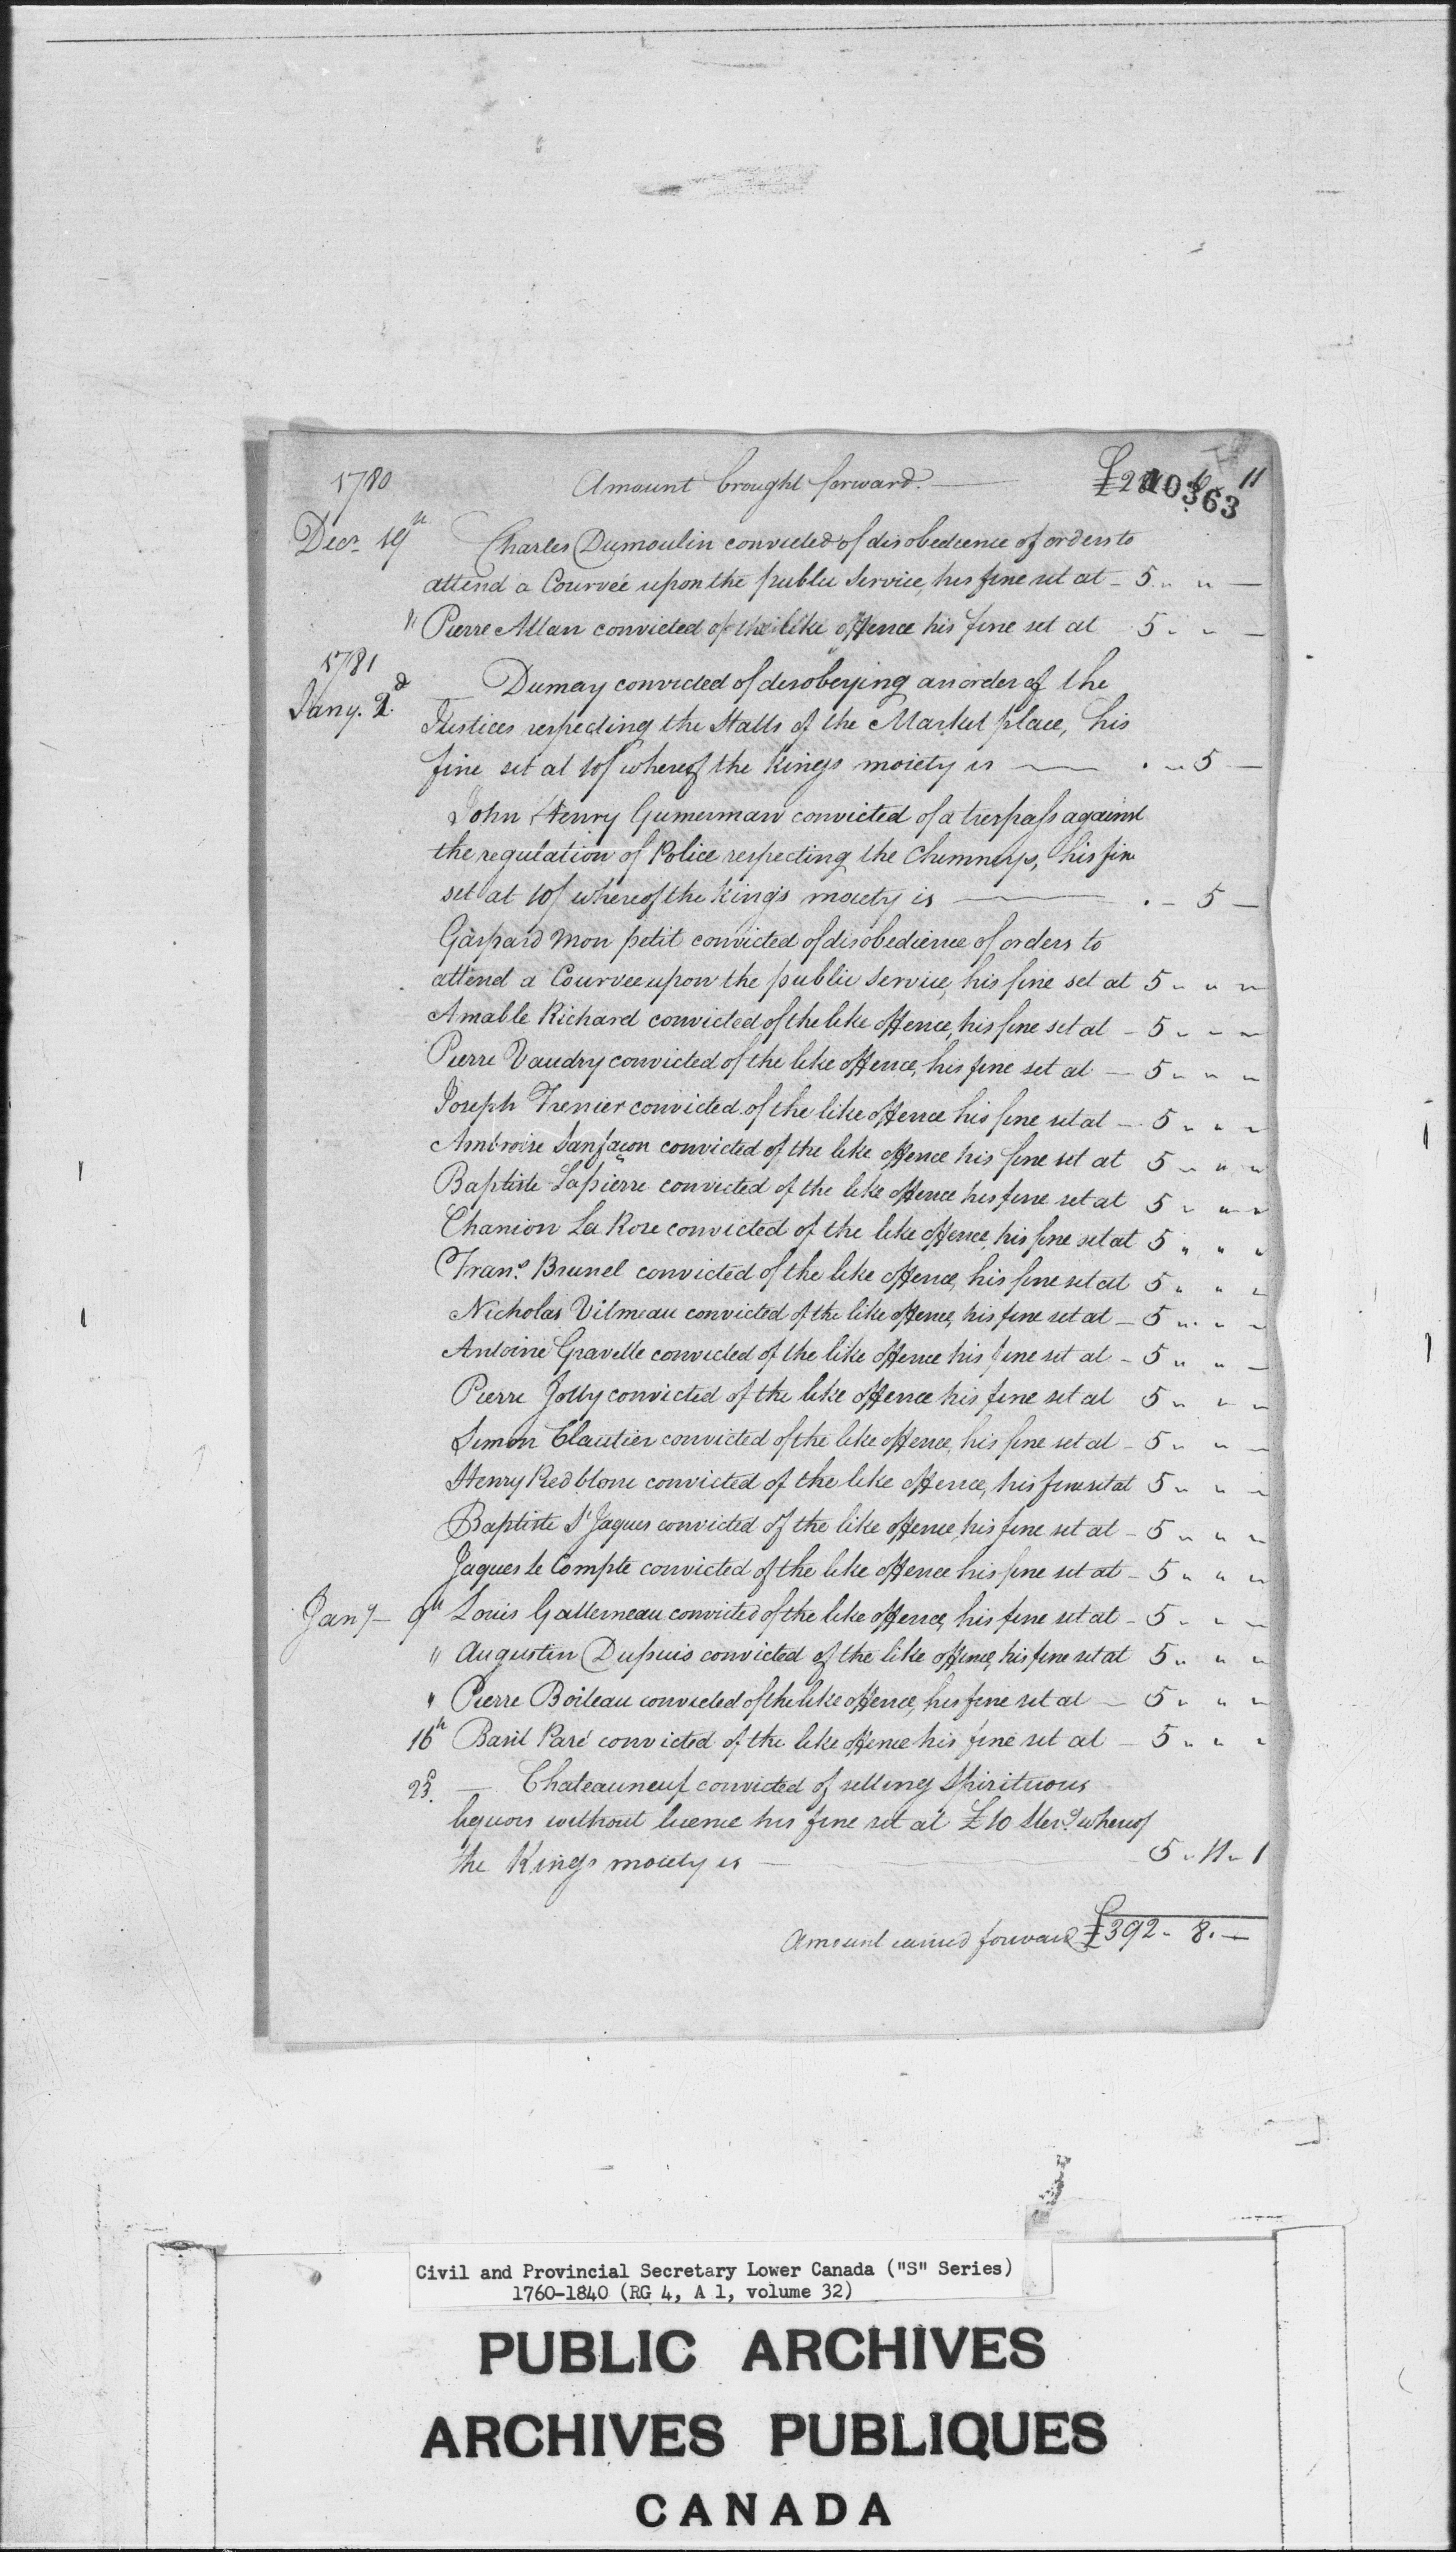 1780 Amount brought forward. — £2 6 11
10363
Decr. 19th Charles Dumoulin convicted of disobedience of orders to
attend a Courveé upon the public Service, his fine set at - 5 " " —
" Pierre Allan convicted of the like offence his fine set at 5 - - —
1781
Jany. 2d. — Dumay convicted of disobeying an order of the
Justices respecting the Stalls of the Market place, his
fine set at 10/ whereof the Kings moiety is — . " 5 —
John Henry Gumerman convicted of a trespass against
the regulation of Police respecting the Chimneys, his fine
set at 10/ whereof the King's moiety is — . - 5 —
Gaspard Mon petit convicted of disobedience of orders to
attend a Courvee upon the public Service, his fine set at 5 " " "
Amable Richard convicted of the like offence, his fine set at - 5 - - -
Pierre Vaudry convicted of the like offence, his fine set at — 5 - - -
Joseph Trenier convicted of the like offence his fine set at — 5 - - -
Ambroise Sanfaçon convicted of the like offence his fine set at 5 - " "
Baptiste Lapierre convicted of the like offence his fine set at 5 - " -
Chanion La Rose convicted of the like offence, his fine set at 5 " " "
Frans. Brunel convicted of the like offence, his fine set at 5 " " -
Nicholas Vilmeau convicted of the like offence, his fine set at — 5 " - -
Antoine Gravelle convicted of the like offence his fine set at - 5 " " —
Pierre Jolly convicted of the like offence his fine set at 5 " - -
Simon Clautier convicted of the like offence, his fine set at - 5 " " —
Henry Redblone convicted of the like offence, his fine set at 5 " " -
Baptiste St Jaques convicted of the like offence, his fine set at - 5 " " -
Jaques le Compte convicted of the like offence his fine set at - 5 " " "
Jany — 9th Louis Gallerneau convicted of the like offence, his fine set at - 5 - - -
" Augustin Dupuis convicted of the like offence, his fine set at 5 " " "
" Pierre Boileau convicted of the like offence, his fine set at — 5 " " "
16th Basil Paré convicted of the like offence his fine set at - 5 " " "
23d. — Chateauneuf convicted of selling Spirituous
liquors without licence his fine set at £10 Sterg. whereof
the Kings moiety is — 5 - 11 - 1
Amount carried forward £392 - 8. —
Civil and Provincial Secretary Lower Canada ("S" Series)
1760-1840 (RG 4, A 1, volume 32)
PUBLIC ARCHIVES
ARCHIVES PUBLIQUES
CANADA